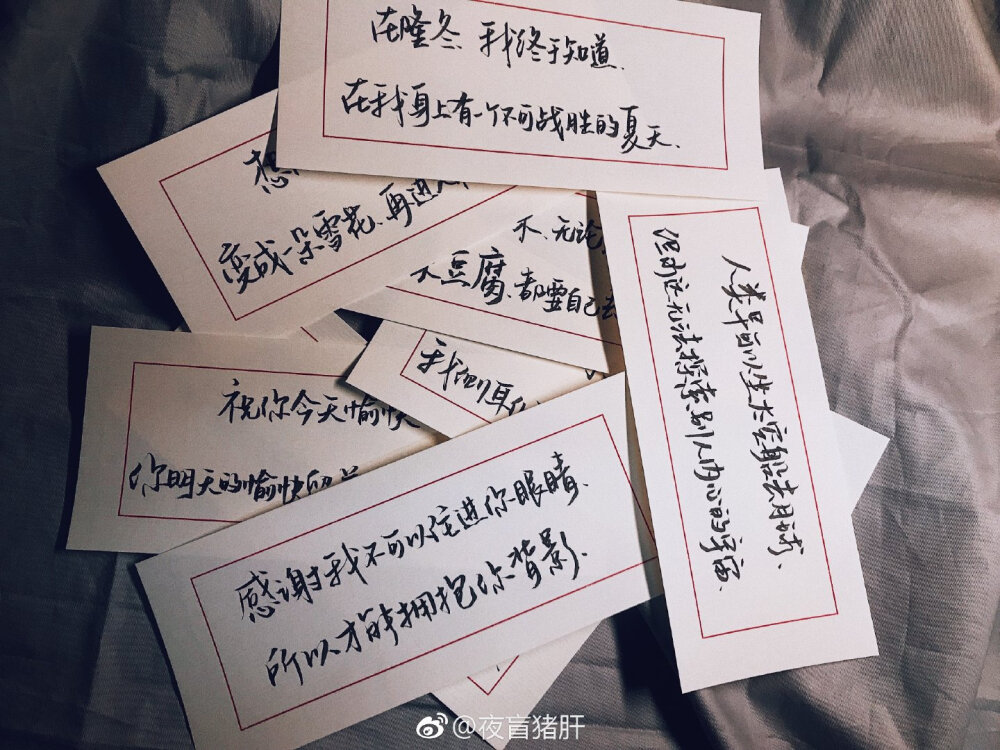 在隆冬、我终于知道、
在我身上有一个不可战胜的夏天、
想
变成一朵雪花、再进入
不、无论
大豆腐、都要自己去
人类早可以坐太空船去月球、
但永远无法探索别人内心的宇宙、
我们
祝你今天愉快
你明天的愉快留着
感谢我不可以住进你眼睛、
所以才能拥抱你背影、
@夜盲猪肝